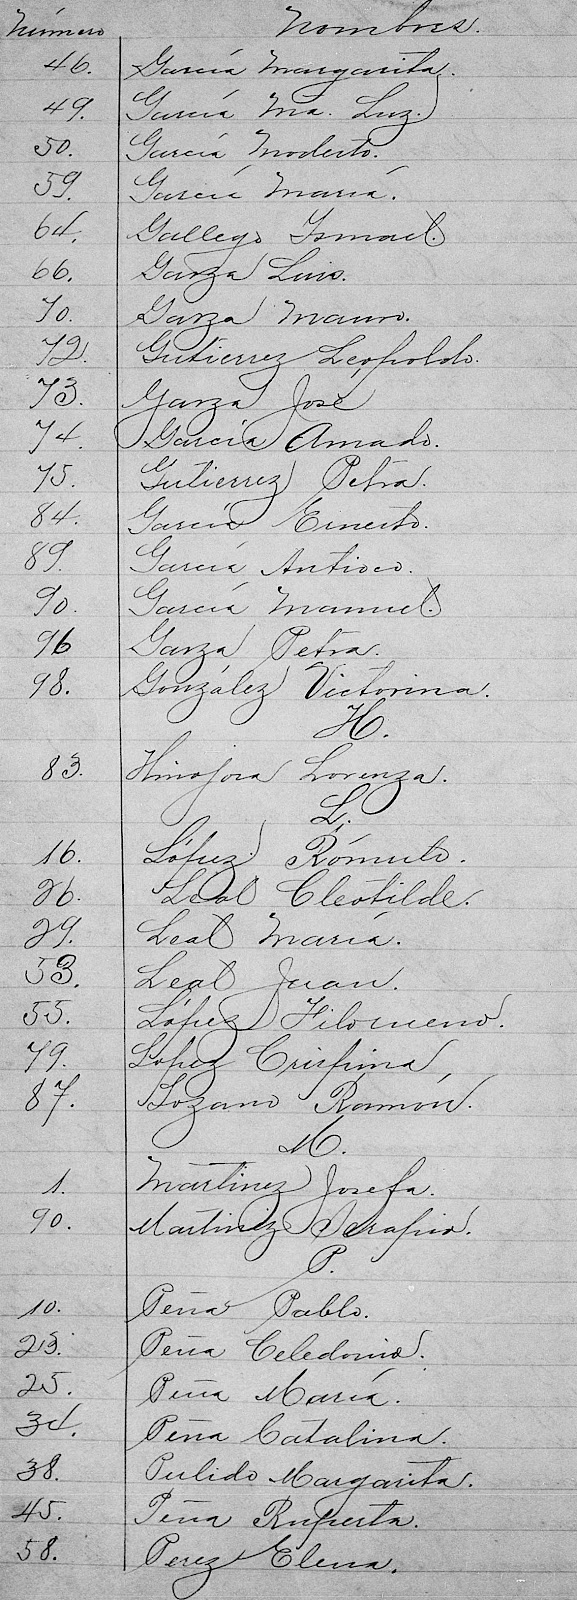 Número Nombres.
46. García Margarita.
49. García Ma. Luz.
50. García Modesto.
59. García María.
64. Gallego Ismael.
66. Garza Luis.
70. Garza Mauro.
72. Gutierrez Leopoldo.
73. Garza José
74. García Amado.
75. Gutierrez Petra.
84. García Ernesto.
89. García Antioco.
90. García Manuel.
96 Garza Petra.
98. González Victorina.
H.
83. Hinojosa Lorenza.
L.
16. López Rómulo.
26. Leal Cleotilde.
29. Leal María.
53. Leal Juan.
55. López Filomeno.
79. López Crispina
87. Lozano Ramón.
M.
1. Martinez Josefa.
90. Martinez Serafin.
P.
10. Peña Pablo.
23. Peña Celedonio.
25. Peña María.
34. Peña Catalina.
38. Pulido Margarita.
45. Peña Ruperta.
58. Perez Elena.